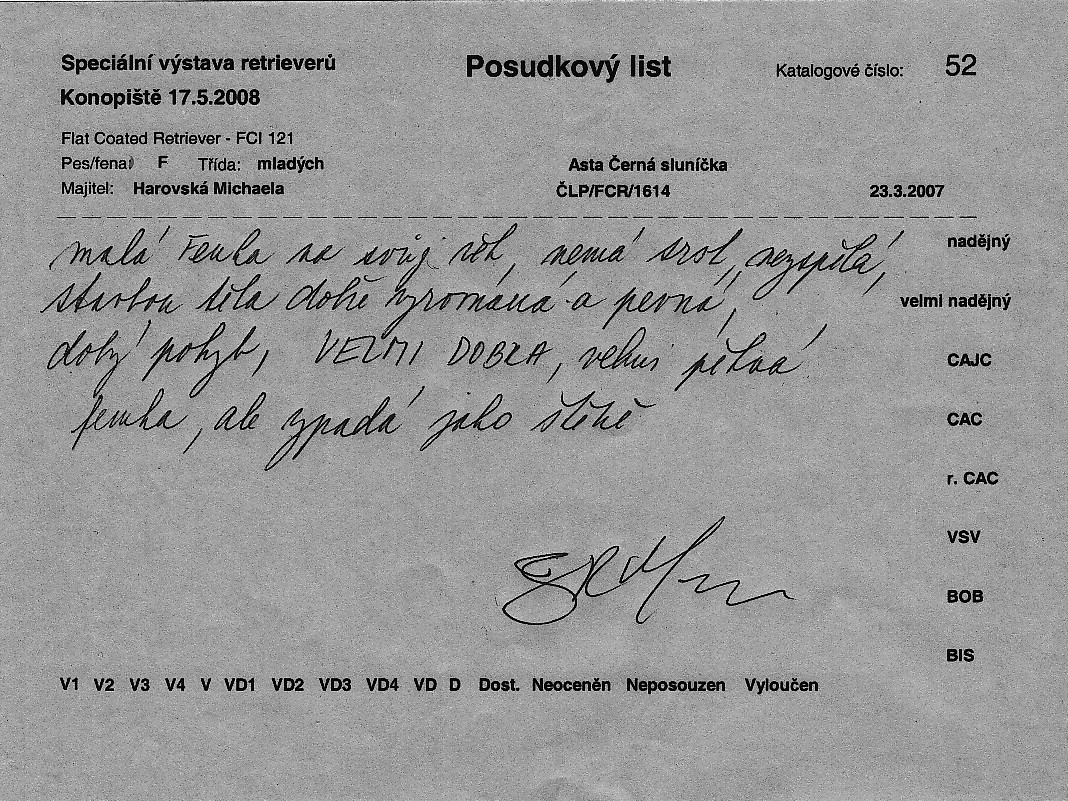 Speciální výstava retrieverů
Posudkový list
Katalogové číslo: 52
Konopiště 17.5.2008
Flat Coated Retriever - FCI 121
Pes/fena: F Třída: mladých
Asta Černá sluníčka
Majitel: Harovská Michaela
ČLP/FCR/1614
23.3.2007
malá Fenka na svůj věk, nemá srst, nezspělá,
stavbou těla dobře vyrovnaná a pevná,
dobrý pohyb, VELMI DOBRÁ, velmi pěkná
fenka, ale vypadá jako štěně
nadějný
velmi nadějný
CAJC
CAC
r. CAC
VSV
BOB
BIS
V1 V2 V3 V4 V VD1 VD2 VD3 VD4 VD D Dost. Neoceněn Neposouzen Vyloučen